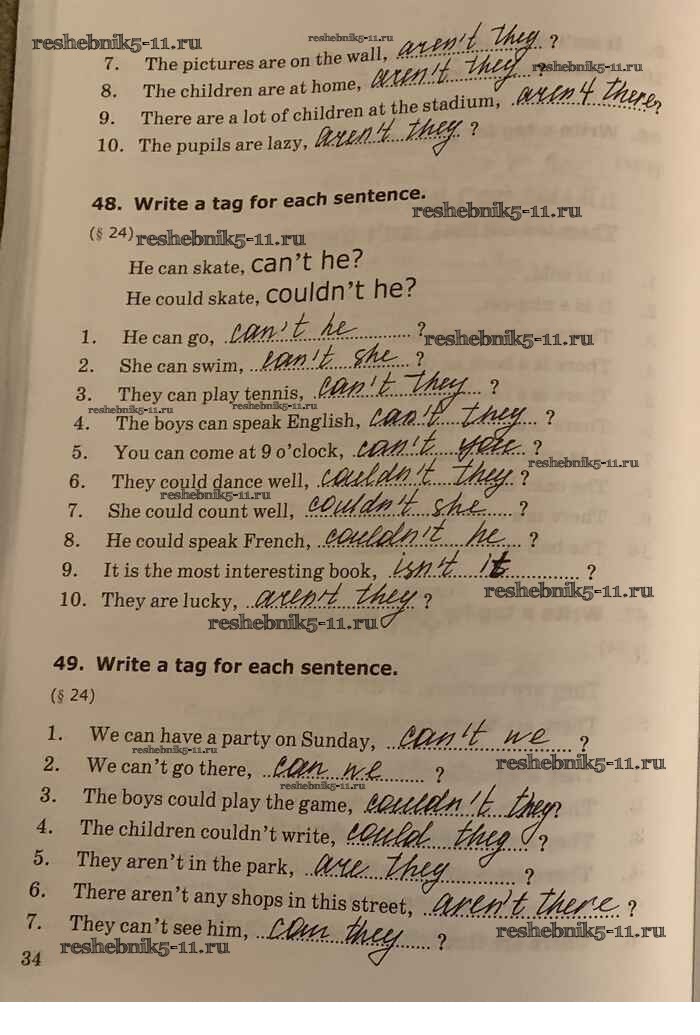 reshebnik5-11.ru reshebnik5-11.ru
7. The pictures are on the wall, aren't they ?
reshebnik5-11.ru
8. The children are at home, aren't they ?
9. There are a lot of children at the stadium, aren't there?
10. The pupils are lazy, aren't they ?
48. Write a tag for each sentence.
reshebnik5-11.ru
(§ 24) reshebnik5-11.ru
He can skate, can't he?
He could skate, couldn't he?
1. He can go, can't he ?
reshebnik5-11.ru
2. She can swim, can't she ?
3. They can play tennis, can't they ?
reshebnik5-11.ru reshebnik5-11.ru
4. The boys can speak English, can't they ?
5. You can come at 9 o'clock, can't you ?
reshebnik5-11.ru
6. They could dance well, couldn't they ?
reshebnik5-11.ru
7. She could count well, couldn't she ?
8. He could speak French, couldn't he ?
9. It is the most interesting book, isn't it ?
reshebnik5-11.ru
10. They are lucky, aren't they ?
reshebnik5-11.ru
49. Write a tag for each sentence.
(§ 24)
1. We can have a party on Sunday, can't we ?
reshebnik5-11.ru
2. We can't go there, can we ?
reshebnik5-11.ru
reshebnik5-11.ru
3. The boys could play the game, couldn't they?
4. The children couldn't write, could they ?
5. They aren't in the park, are they ?
6. There aren't any shops in this street, aren't there ?
7. They can't see him, can they ?
reshebnik5-11.ru
reshebnik5-11.ru
34